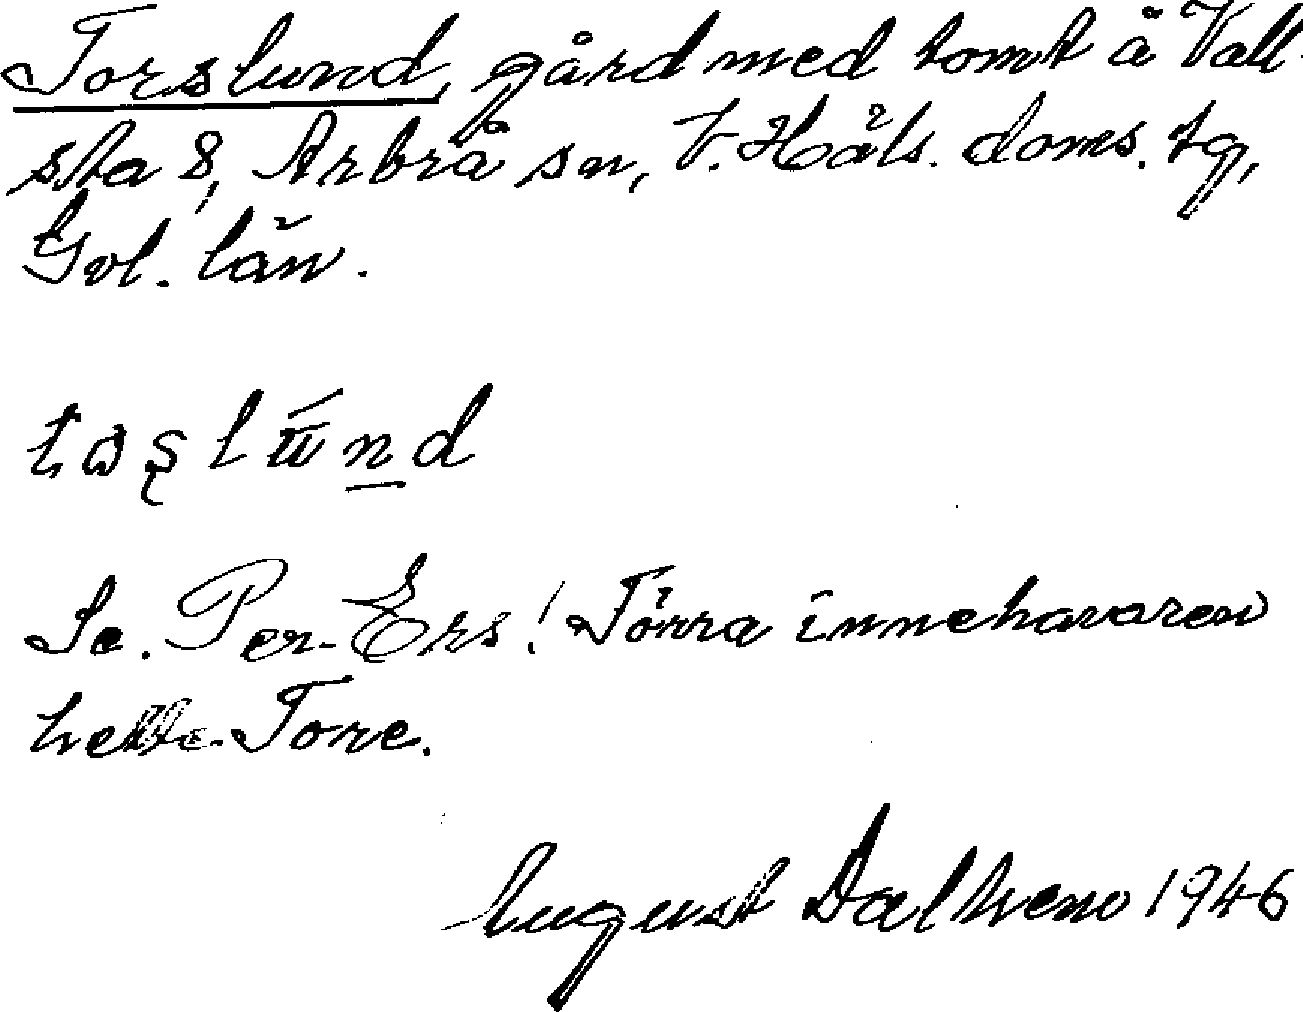 Torslund, gård med tomt å Vall-
sta 8, Arbrå sn, V. Häls. doms. tg,
Gvl. län.
Se. Per-Ers! Förra innehavaren
hette Tore.
August Dalhem 1946